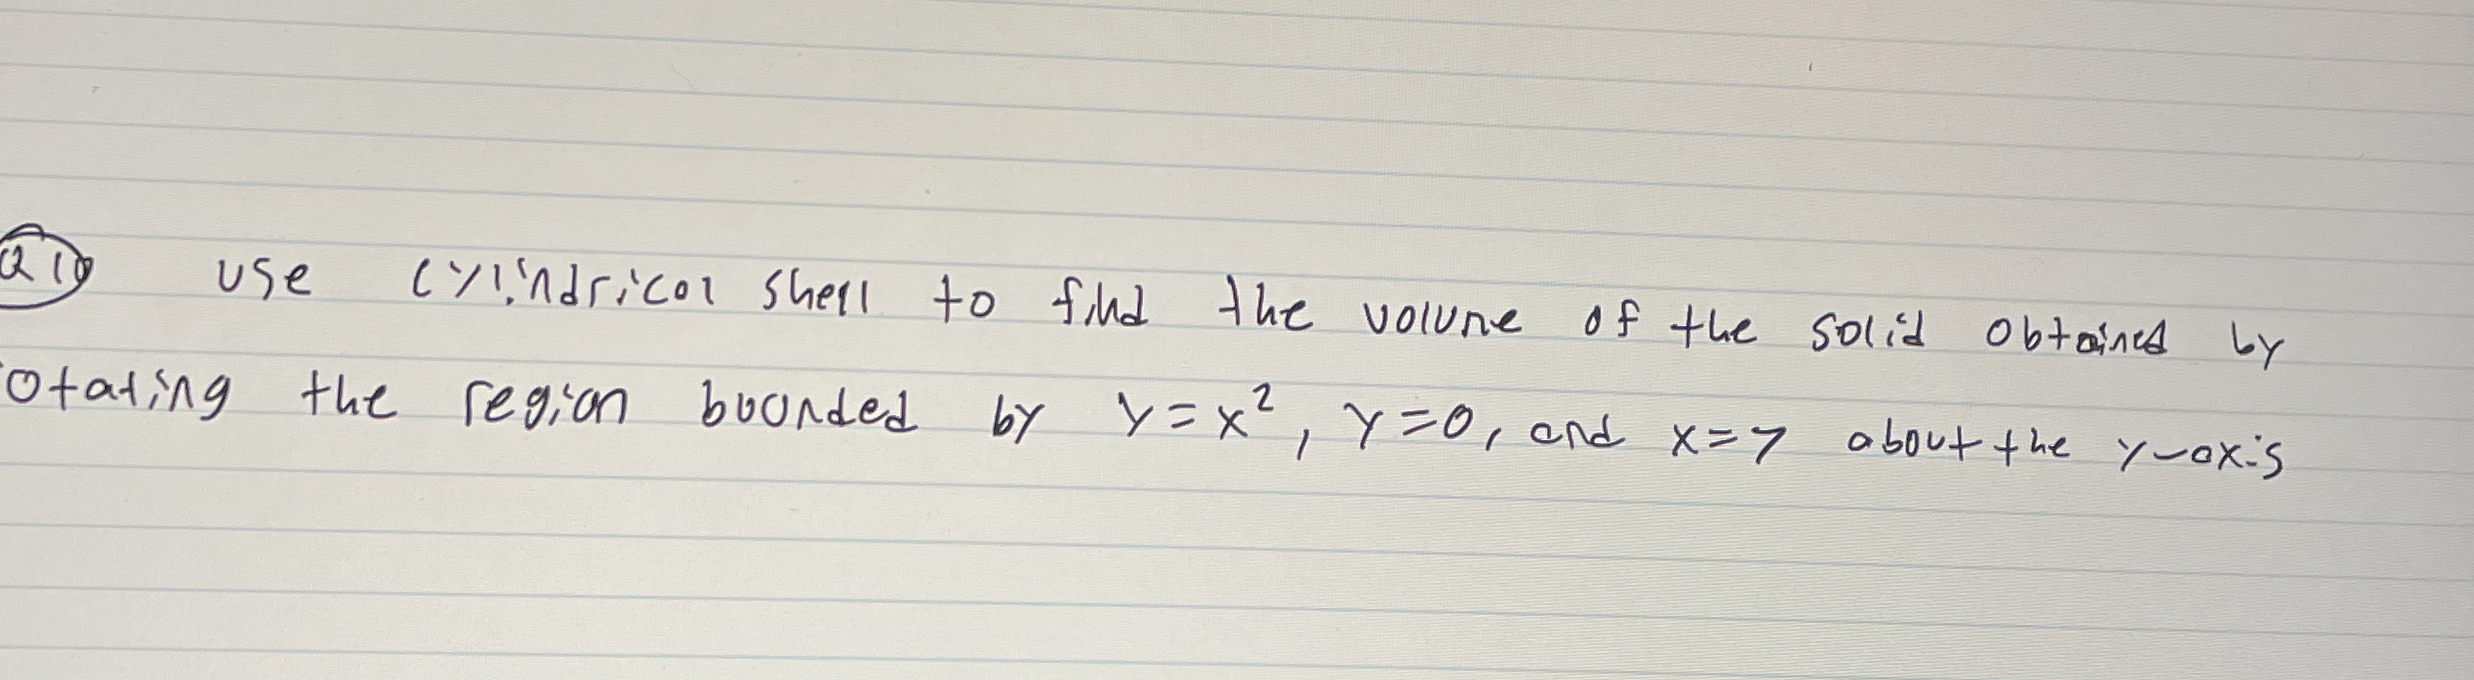 Q10 use cylindrical shell to find the volume of the solid obtained by
otating the region bounded by y=x², y=0, and x=7 about the y-axis